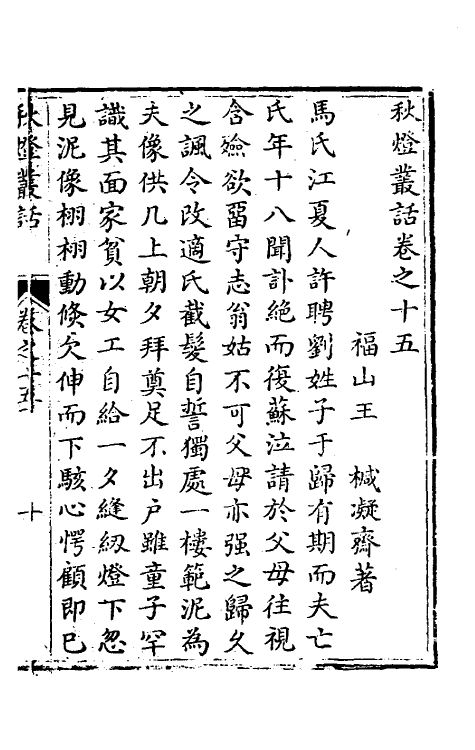 秋燈叢話卷之十五
福山王　椷凝齋著
馬氏江夏人許聘劉姓子于歸有期而夫亡
氏年十八聞訃絕而復蘇泣請於父母往視
含殮欲畱守志翁姑不可父母亦强之歸久
之諷令改適氏截髮自誓獨處一樓範泥為
夫像供几上朝夕拜奠足不出户雖童子罕
識其面家貧以女工自給一夕縫紉燈下忽
見泥像栩栩動倏欠伸而下駭心愕顧即已
秋燈叢話
卷之十五
十